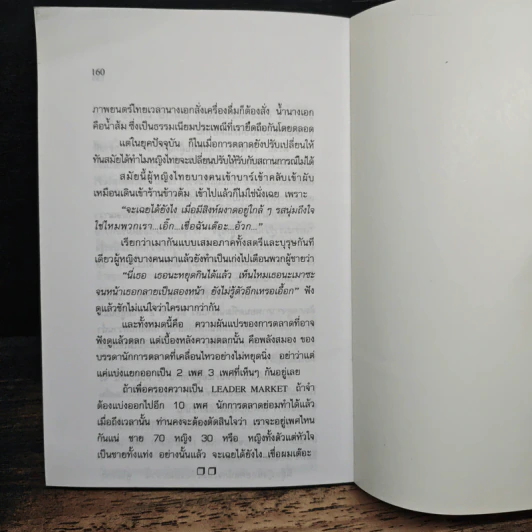 160
ภาพยนตร์ไทยเวลานางเอกสั่งเครื่องดื่มก็ต้องสั่ง น้ำนางเอก
คือน้ำส้ม ซึ่งเป็นธรรมเนียมประเพณีที่เรายึดถือกันโดยตลอด
แต่ในยุคปัจจุบัน ก็ในเมื่อการตลาดยังปรับเปลี่ยนให้
ทันสมัยได้ทำไมหญิงไทยจะเปลี่ยนปรับให้รับกับสถานการณ์ไม่ได้
สมัยนี้ผู้หญิงไทยบางคนเข้าบาร์เข้าคลับเข้าผับ
เหมือนเดินเข้าร้านข้าวต้ม เข้าไปแล้วก็ไม่ใช่นั่งเฉย เพราะ
"จะเฉยได้ยังไง เมื่อมีสิงห์ผงาดอยู่ใกล้ ๆ รสนุ่มถึงใจ
ใช่ไหมพวกเรา...เอิ๊ก...เชื่อฉันเต๊อะ...อ้วก..."
เรียกว่าเมากันแบบเสมอภาคทั้งสตรีและบุรุษกันที
เดียวผู้หญิงบางคนเมาแล้วยังทำเป็นเก่งไปเตือนพวกผู้ชายว่า
"นี่เธอ เธอนะหยุดกินได้แล้ว เห็นไหมเธอนะเมาซะ
จนหน้าเธอกลายเป็นสองหน้า ยังไม่รู้ตัวอีกเหรอเอื้อก" ฟัง
ดูแล้วชักไม่แน่ใจว่าใครเมากว่ากัน
และทั้งหมดนี้คือ ความผันแปรของการตลาดที่อาจ
ฟังดูแล้วตลก แต่เบื้องหลังความตลกนั้น คือพลังสมอง ของ
บรรดานักการตลาดที่เคลื่อนไหวอย่างไม่หยุดนิ่ง อย่าว่าแต่
แค่แบ่งแยกออกเป็น 2 เพศ 3 เพศที่เห็นๆ กันอยู่เลย
ถ้าเพื่อครองความเป็น LEADER MARKET ถ้าจำ
ต้องแบ่งออกไปอีก 10 เพศ นักการตลาดย่อมทำได้แล้ว
เมื่อถึงเวลานั้น ท่านคงจะต้องตัดสินใจว่า เราจะอยู่เพศไหน
กันแน่ ชาย 70 หญิง 30 หรือ หญิงทั้งตัวแต่หัวใจ
เป็นชายทั้งแท่ง อย่างนั้นแล้ว จะเฉยได้ยังไง...เชื่อผมเต๊อะ